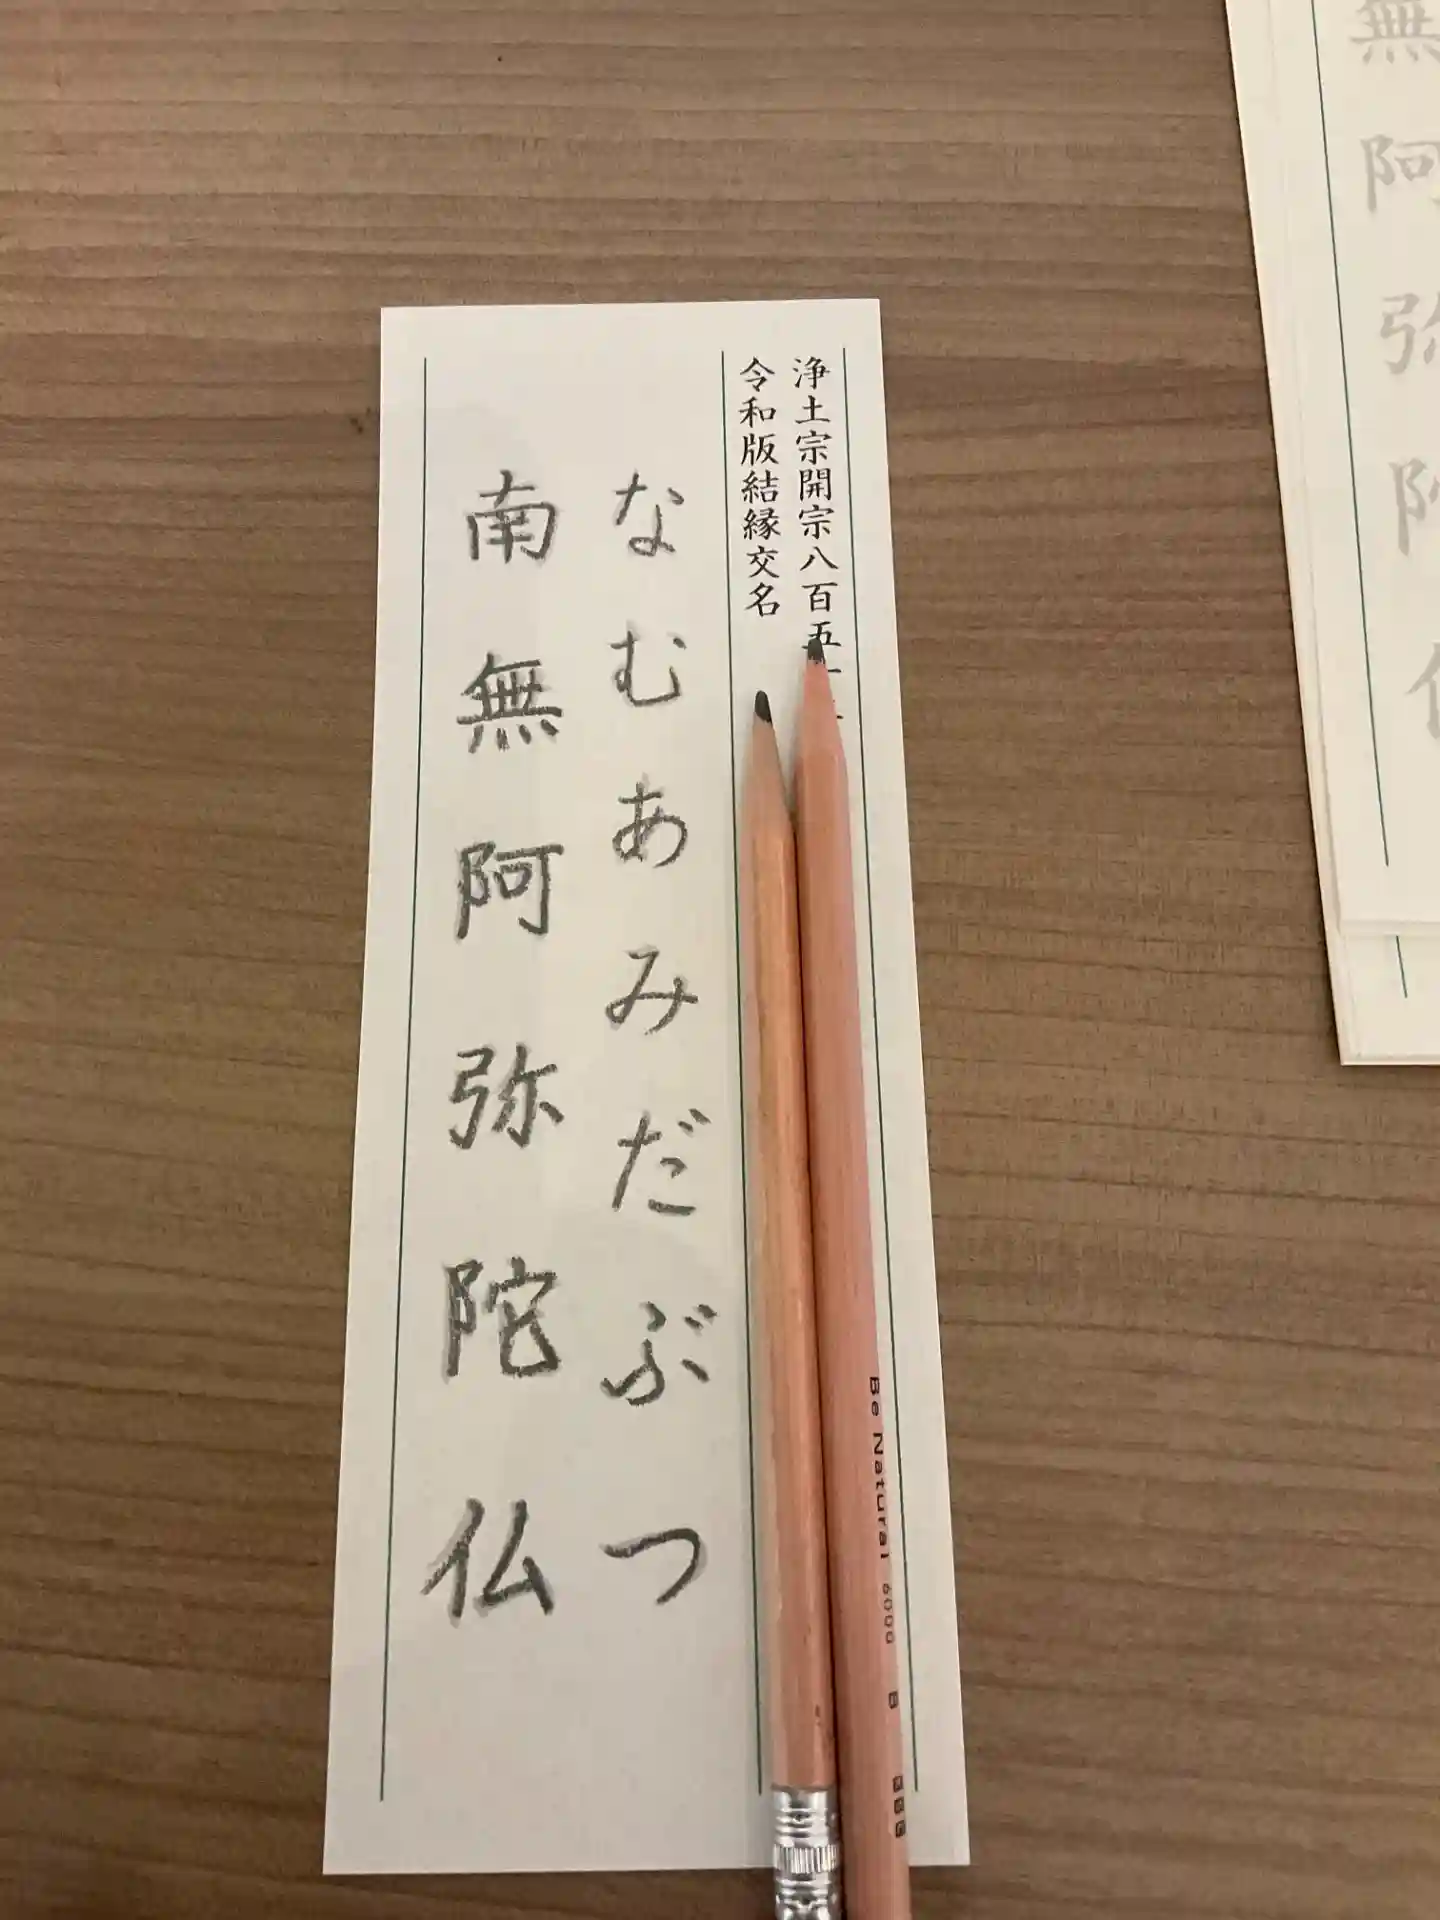 浄土宗開宗八百五十年
令和版結縁交名
なむあみだぶつ
南無阿弥陀仏
Be Natural 6000 B
無阿弥陀仏